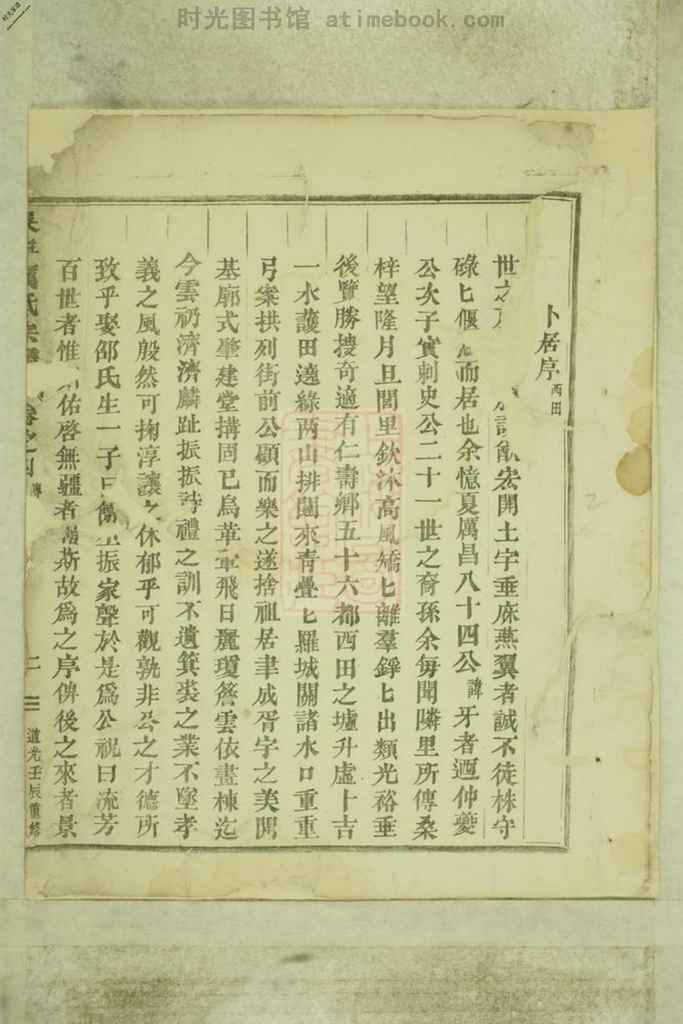 时光图书馆 atimebook.com
卜居序 西田
世之 宏開土宇垂庥燕翼者誠不徒株守
碌匕偃 而居也余憶夏厲昌八十四公諱牙者迺仲夔
公次子實刺史公二十一世之裔孫余每聞隣里所傳桑
梓望隆月旦閭里欽沐高風矯匕離羣錚匕出類光裕垂
後覽勝搜奇適有仁壽鄉五十六都西田之墟升虛卜吉
一水護田遶綠兩山排闥來青疊匕羅城關諸水口重重
弓案拱列街前公顧而樂之遂捨祖居聿成胥宇之美開
基廓式肇建堂搆固已烏革翬飛日麗瓊簷雲依畫棟迄
今雲礽濟濟麟趾振振詩禮之訓不遺箕裘之業不墜孝
義之風殷然可掬淳讓之休郁乎可觀孰非公之才德所
致乎娶邵氏生一子曰 振家聲於是爲公祝曰流芳
百世者惟 佑啓無疆者 斯故爲之序俾後之來者景
氏宗譜 卷之 傳 二 道光壬辰重修